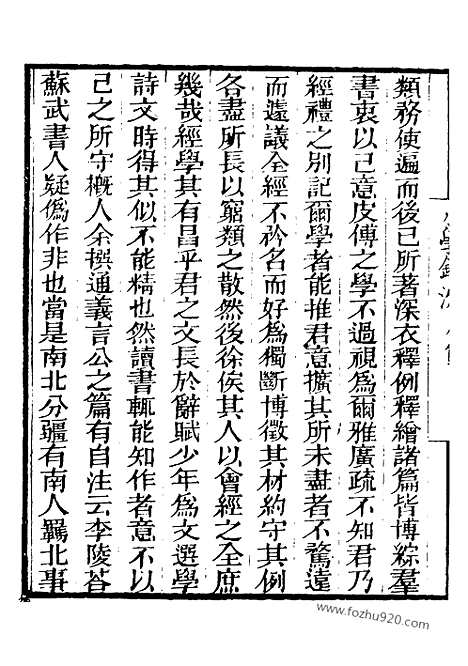 類務使遍而後已所著深衣釋例釋繒諸篇皆博綜羣
書衷以己意皮傅之學不過視爲爾雅廣疏不知君乃
經禮之別記爾學者能推君意擴其所未盡者不驚遠
而遽議全經不矜名而好爲獨斷博徵其材約守其例
各盡所長以窮類之散然後徐俟其人以會經之全庶
幾哉經學其有昌乎君之文長於辭賦少年爲文選學
詩文時得其似不能精也然讀書輒能知作者意不以
己之所守概人余撰通義言公之篇有自注云李陵荅
蘇武書人疑僞作非也當是南北分疆有南人羈北事
www.fozhu920.com